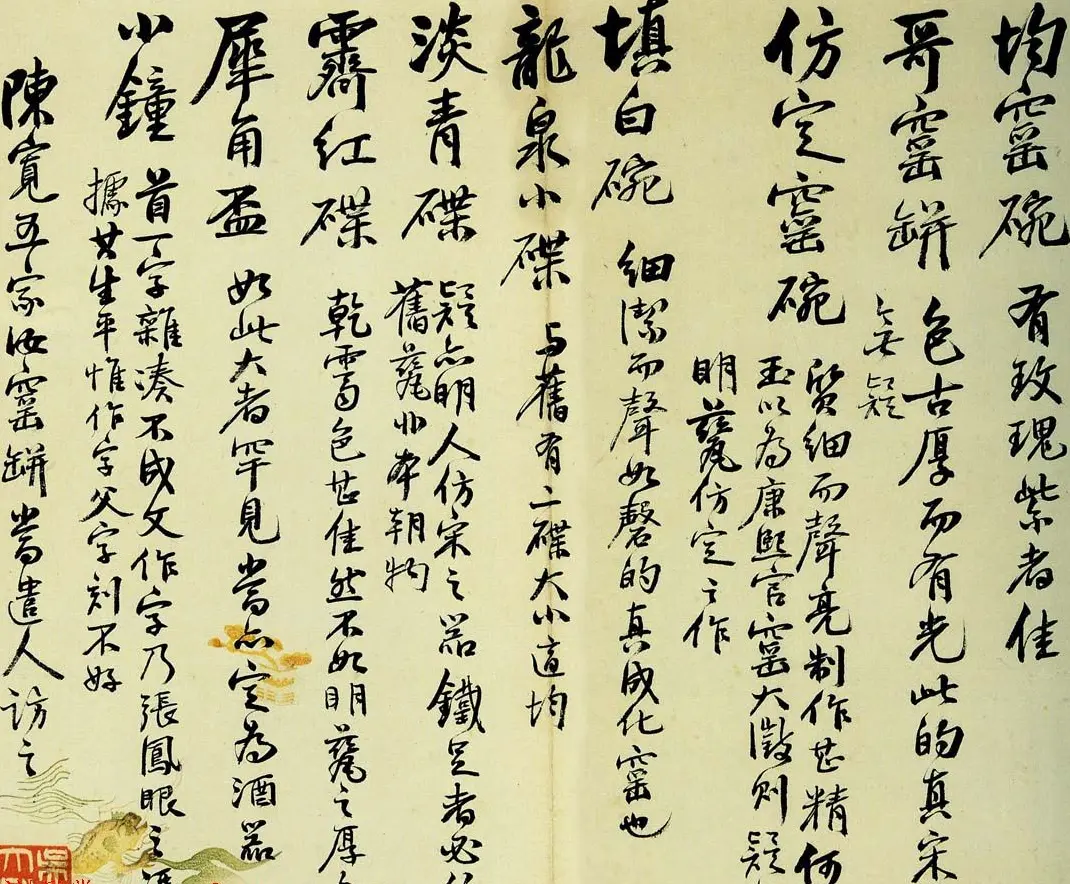 均窑碗 有玫瑰紫者佳
哥窑缾 色古厚而有光此的真宋
無疑
仿定窑碗 質細而聲亮制作甚精何
玉以為康熙官窑大澂則疑
明甆仿定之作
填白碗 細潔而聲如磬的真成化窑也
龍泉小碟 与舊有二碟大小適均
淡青碟 疑亦明人仿宋之器鐵足者必係
舊甆非本朝物
霽紅碟 乾霽色甚佳然不如明甆之厚
犀角盃 如此大者罕見嵩亦定為酒器
小鐘 首一字雜湊不成文作字乃張鳳眼之
據其生平惟作字父字刻不好
陳寬五家汝窑缾嵩遣人訪之